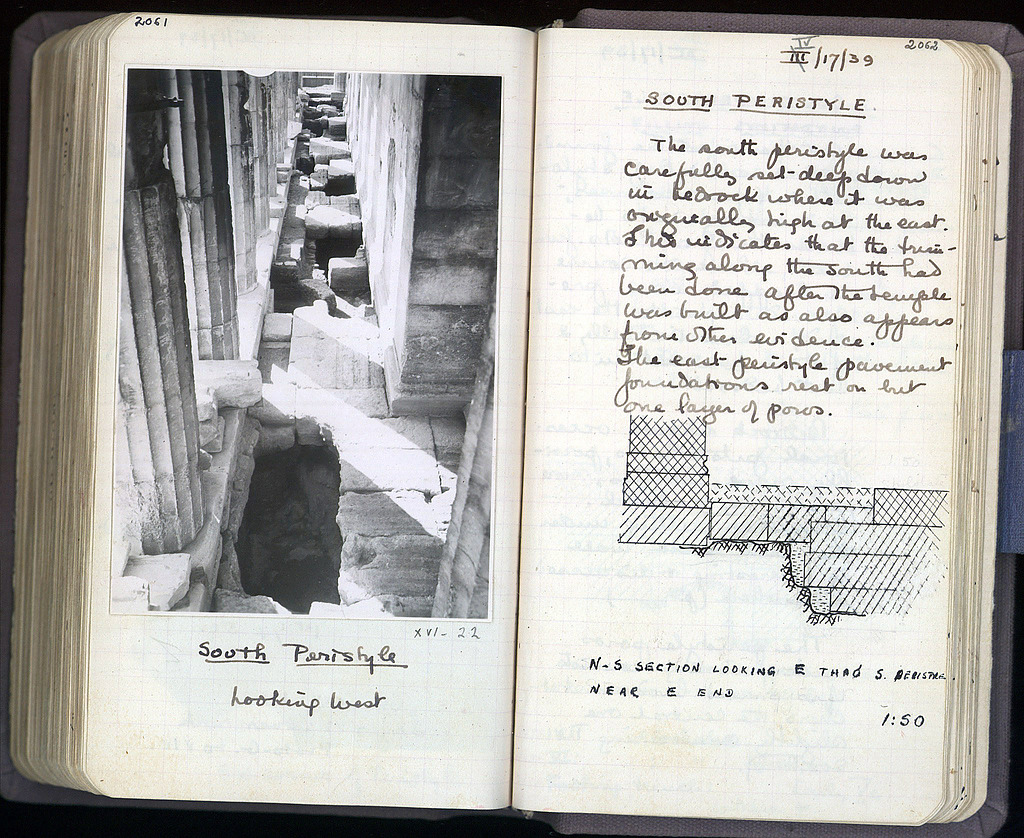 2061
XVI - 22
South Peristyle
Looking West
2062
IV
III/17/39
SOUTH PERISTYLE.
The south peristyle was
carefully set deep down
in bedrock where it was
origenally high at the east.
This indicates that the trim-
ming along the south had
been done after the temple
was built as also appears
from other evidence.
The east peristyle pavement
foundations rest on but
one layer of poros.
N-S SECTION LOOKING E THRO S. PERISTYLE
NEAR E END
1:50